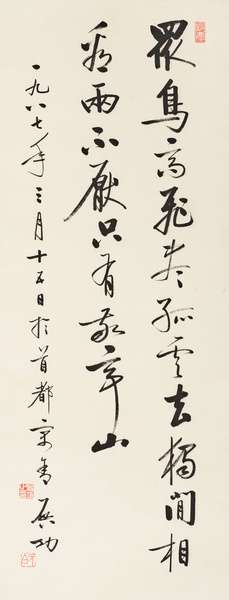 眾鳥高飛盡孤雲去獨閒相
看兩不厭只有敬亭山
一九八七年三月十五日於首都 启功